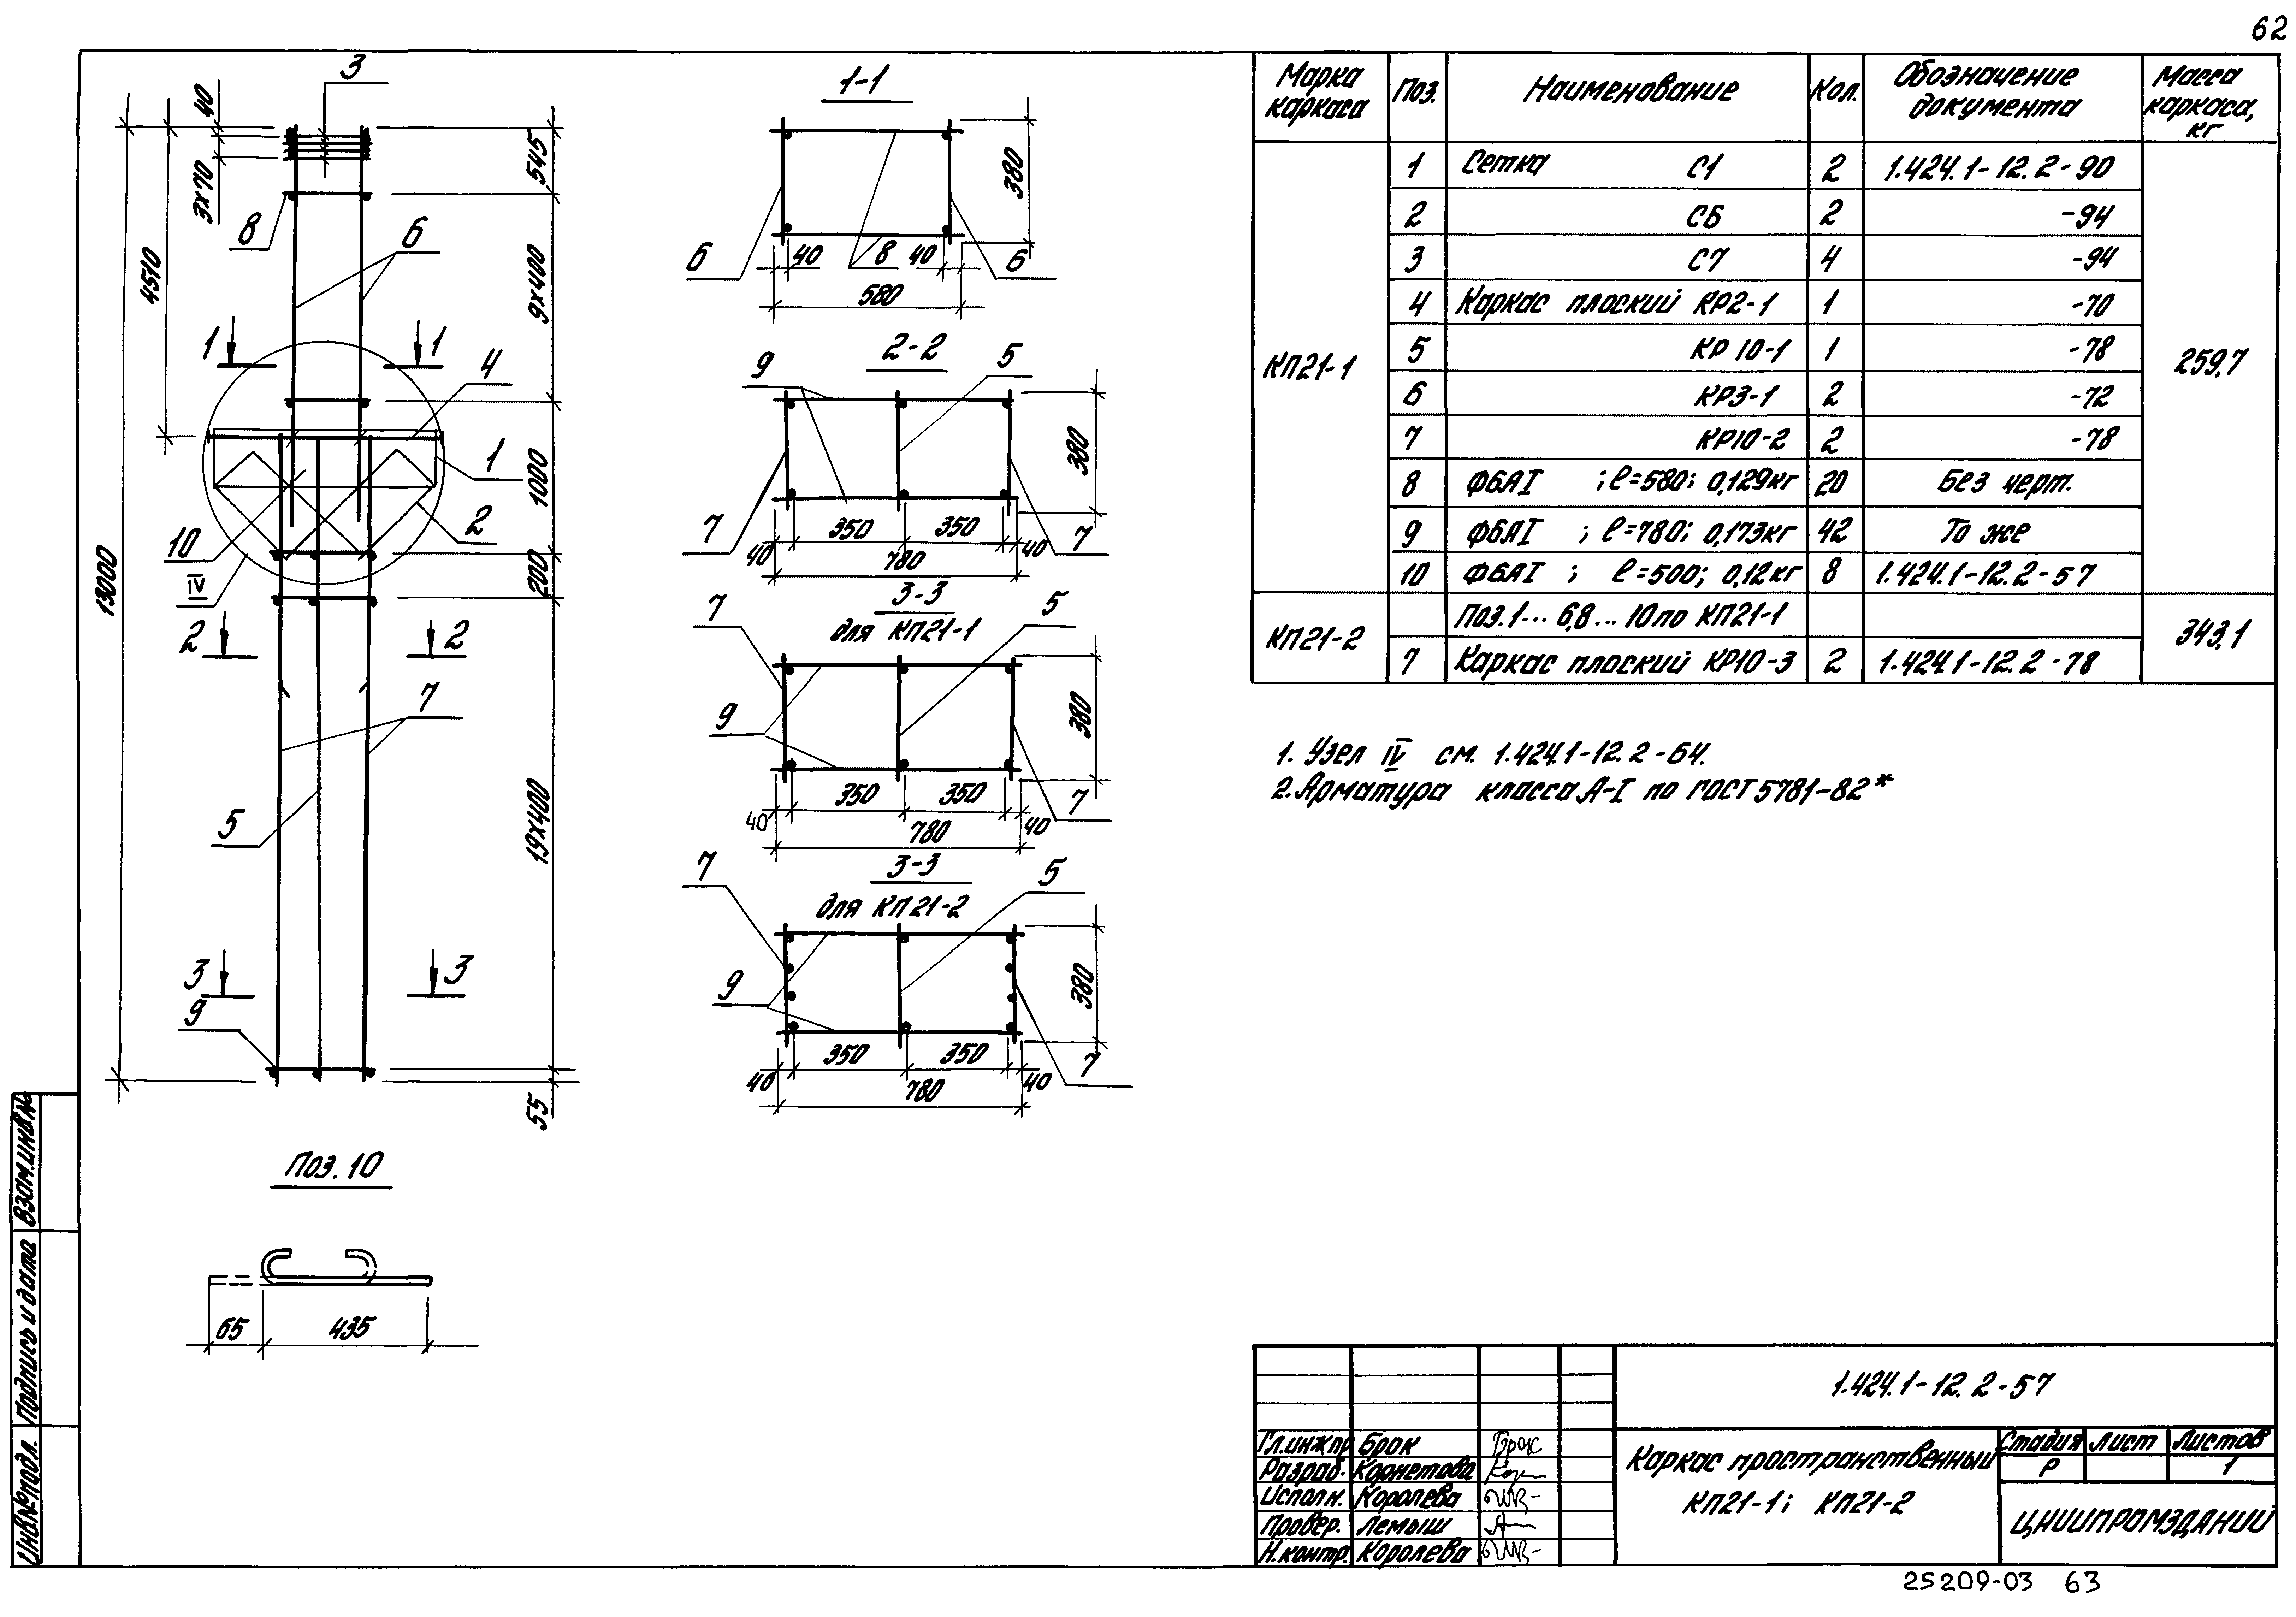 62
3
40
3х70
4510
13000
545
9х400
1000
200
19х400
55
8
6
1
1
4
1
2
10
IV
2
2
7
5
3
3
9
Поз. 10
65
435
1-1
6
40
8
40
6
580
380
2-2
9
5
7
7
40
350
350
40
780
380
3-3
для КП21-1
7
5
9
7
40
350
350
40
780
380
3-3
для КП21-2
7
5
9
7
40
350
350
40
780
380
Марка каркаса Поз. Наименование Кол. Обозначение документа Масса каркаса, кг
КП21-1
259,7
1 Сетка С1 2 1.424.1-12.2-90
2 С6 2 -94
3 С7 4 -94
4 Каркас плоский КР2-1 1 -70
5 КР10-1 1 -78
6 КР3-1 2 -72
7 КР10-2 2 -78
8 Ф6АI ; ℓ=580; 0,129кг 20 Без черт.
9 Ф6АI ; ℓ=780; 0,173кг 42 То же
10 Ф6АI ; ℓ=500; 0,12кг 8 1.424.1-12.2-57
КП21-2
343,1
Поз. 1... 6,8... 10 по КП21-1
7 Каркас плоский КР10-3 2 1.424.1-12.2-78
1. Узел IV см. 1.424.1-12.2-64.
2. Арматура класса А-I по ГОСТ 5781-82*
Взам.инв.№
Подпись и дата
Инв.№подл.
1.424.1-12.2-57
Гл.инж.пр. Брок
Разраб. Корнетова
Исполн. Королева
Провер. Лемыш
Н.контр. Королева
Каркас пространственный
КП21-1; КП21-2
Стадия Лист Листов
Р 1
ЦНИИПРОМЗДАНИЙ
25209-03 63